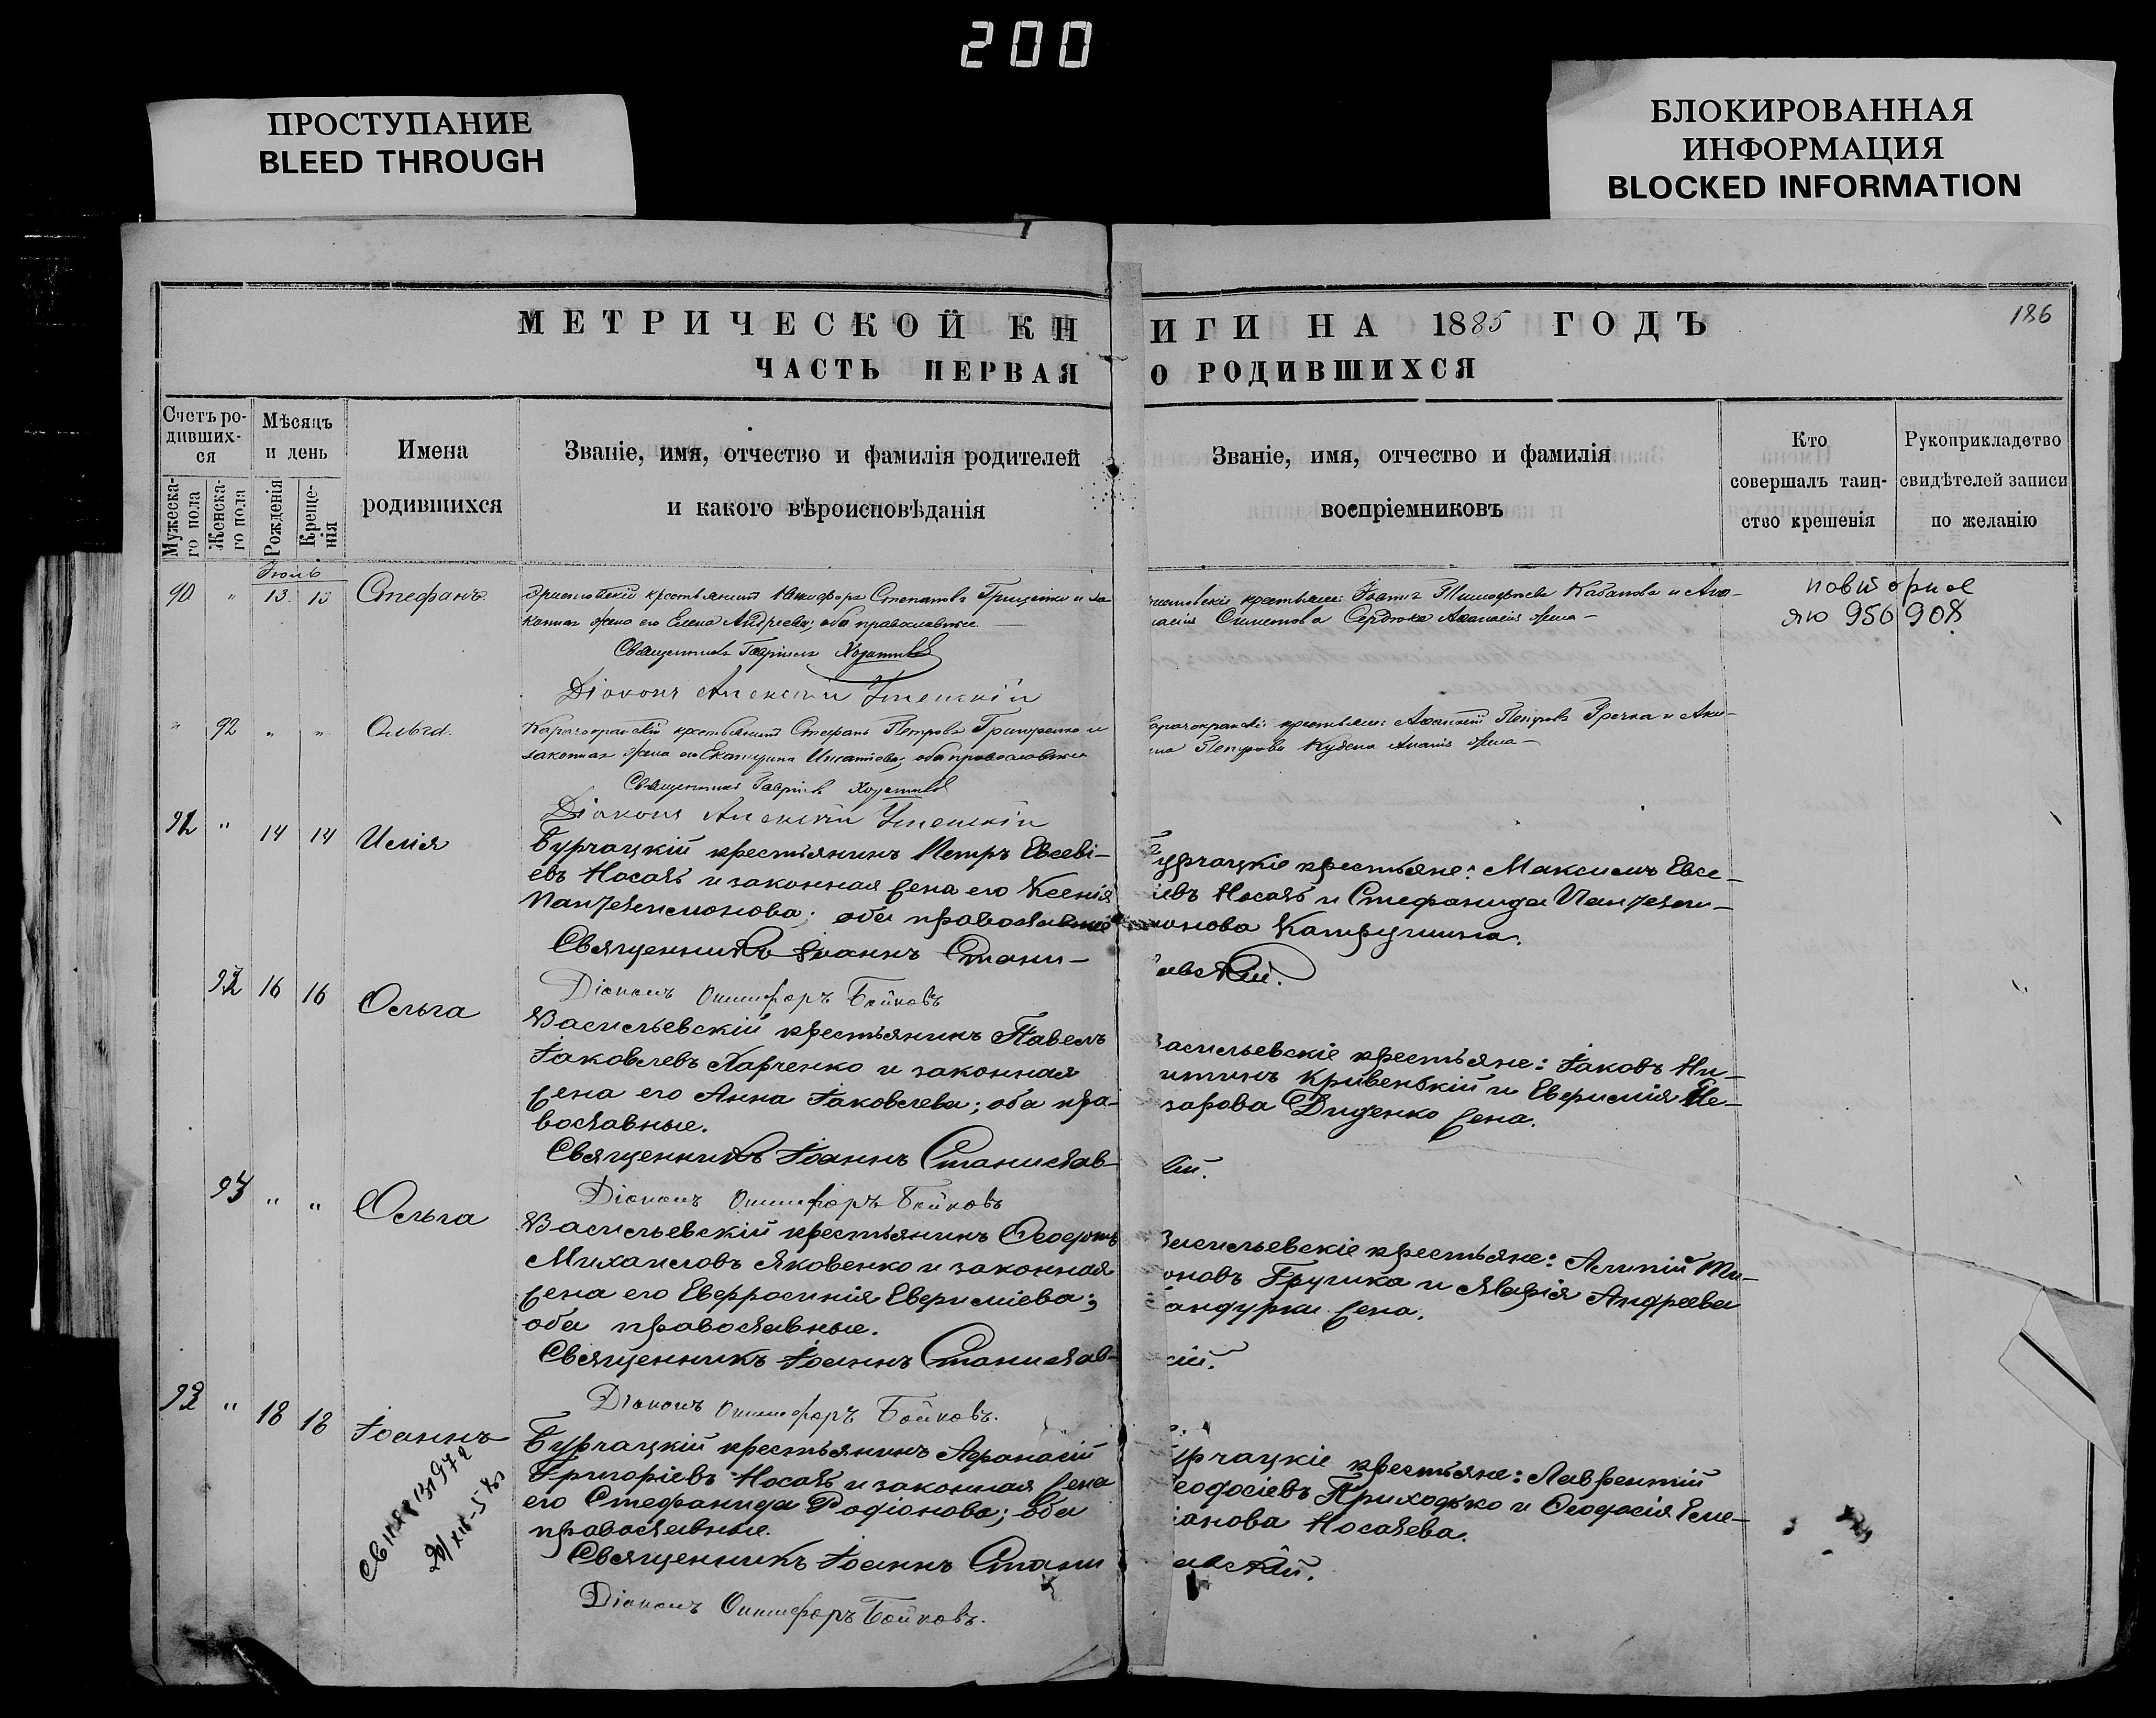 200
ПРОСТУПАНИЕ
BLEED THROUGH
БЛОКИРОВАННАЯ
ИНФОРМАЦИЯ
BLOCKED INFORMATION
186
МЕТРИЧЕСКОЙ КНИГИ НА 1885 ГОДЪ
ЧАСТЬ ПЕРВАЯ О РОДИВШИХСЯ
Счетъ ро-
дивших-
ся
Мужеска-
го пола
Женска-
го пола
Мѣсяцъ
и день
Рожденія
Креще-
нія
Имена
родившихся
Званіе, имя, отчество и фамилія родителей
и какого вѣроисповѣданія
Званіе, имя, отчество и фамилія
воспріемниковъ
Кто
совершалъ таин-
ство крешенія
Рукоприкладство
свидѣтелей записи
по желанію
Іюль
90 " 13 13 Стефанъ
крестьянинъ Никифоръ Степановъ Грищенко и за-
конная жена его Елена Андреева; оба православные
Священникъ Гавріилъ
Діаконъ Алексій
крестьяне: Іоаннъ Тимофеевъ Кабановъ и
Симеонова Сердюка жена
повторное
ЯЮ 956908
" 92 " " Ольга
крестьянинъ Стефанъ Петровъ Григоренко и
законная жена его Екатерина Игнатіева; оба православные
Священникъ Гавріилъ
Діаконъ Алексій
крестьяне: Петровъ Гречка и
Петрова жена
91 " 14 14 Илія
Бурчацкій крестьянинъ Петръ Евсеві-
евъ Носаль и законная жена его Ксенія
Пантелеимонова; оба православные
Священникъ Іоаннъ Стани-
Діаконъ Онисифоръ Бойковъ
Бурчацкіе крестьяне: Максимъ Евсе-
іевъ Носаль и Стефанида Пантелеи-
монова
авскій.
93 16 16 Ольга
Васильевскій крестьянинъ Павелъ
Іаковлевъ Харченко и законная
жена его Анна Іаковлева; оба пра-
вославные.
Священникъ Іоаннъ Станислав-
Діаконъ Онисифоръ Бойковъ
Васильевскіе крестьяне: Іаковъ Ни-
китинъ Кривенький и Евфимія
зарова Диденко жена.
кій.
" " Ольга
Васильевскій крестьянинъ Ѳеодотъ
Михаиловъ Яковенко и законная
жена его Евфросинія Евфиміева;
оба православные.
Священникъ Іоаннъ Станислав-
Діаконъ Онисифоръ Бойковъ.
Васильевскіе крестьяне: Алипій
и Марія Андреева
Бандурки жена.
скій.
92 " 18 18 Іоаннъ
Бурчацкій крестьянинъ Аѳанасій
Григоріевъ Носаль и законная жена
его Стефанида Родіонова; оба
православные.
Священникъ Іоаннъ Стани
Діаконъ Онисифоръ Бойковъ.
Бурчацкіе крестьяне: Лаврентій
Ѳеодосіевъ Приходько и Ѳеодосія Еме-
ліанова Носалева.
авскій.